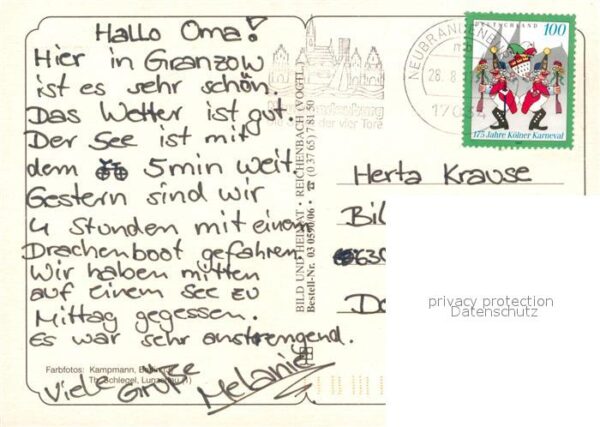 Hallo Oma!
Hier in Granzow
ist es sehr schön.
Das Wetter ist gut.
Der See ist mit
dem 5min weit.
Gestern sind wir
4 Stunden mit einem
Drachenboot gefahren.
Wir haben mitten
auf einem See zu
Mittag gegessen.
Es war sehr anstrengend.
Viele Grüße
Melanie
Farbfotos: Kampmann,
Th. Schlegel, (1)
BILD UND HEIMAT · REICHENBACH (VOGTL.)
Bestell-Nr. 03 0590/06 · ☎ (0 37 65) 7 81 50
der vier Tore
NEUBRANDENB
mb
28.8.
17034
DEUTSCHLAND 100
175 Jahre Kölner Karneval
Herta Krause
Bil
630
Do
privacy protection
Datenschutz